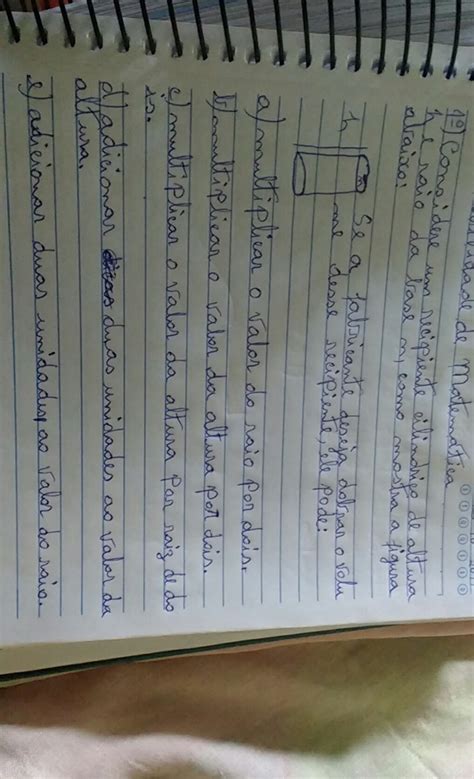 de Matemática
1º) Considere um recipiente cilíndrico de altura
h e raio da base r, como mostra a figura
abaixo:
h
Se a fabricante deseja dobrar o volu
me desse recipiente, ele pode:
a) multiplicar o valor do raio por dois.
b) multiplicar o valor da altura por dois.
c) multiplicar o valor da altura por raiz de do
is.
d) adicionar duas unidades ao valor da
altura.
e) adicionar duas unidades ao valor do raio.